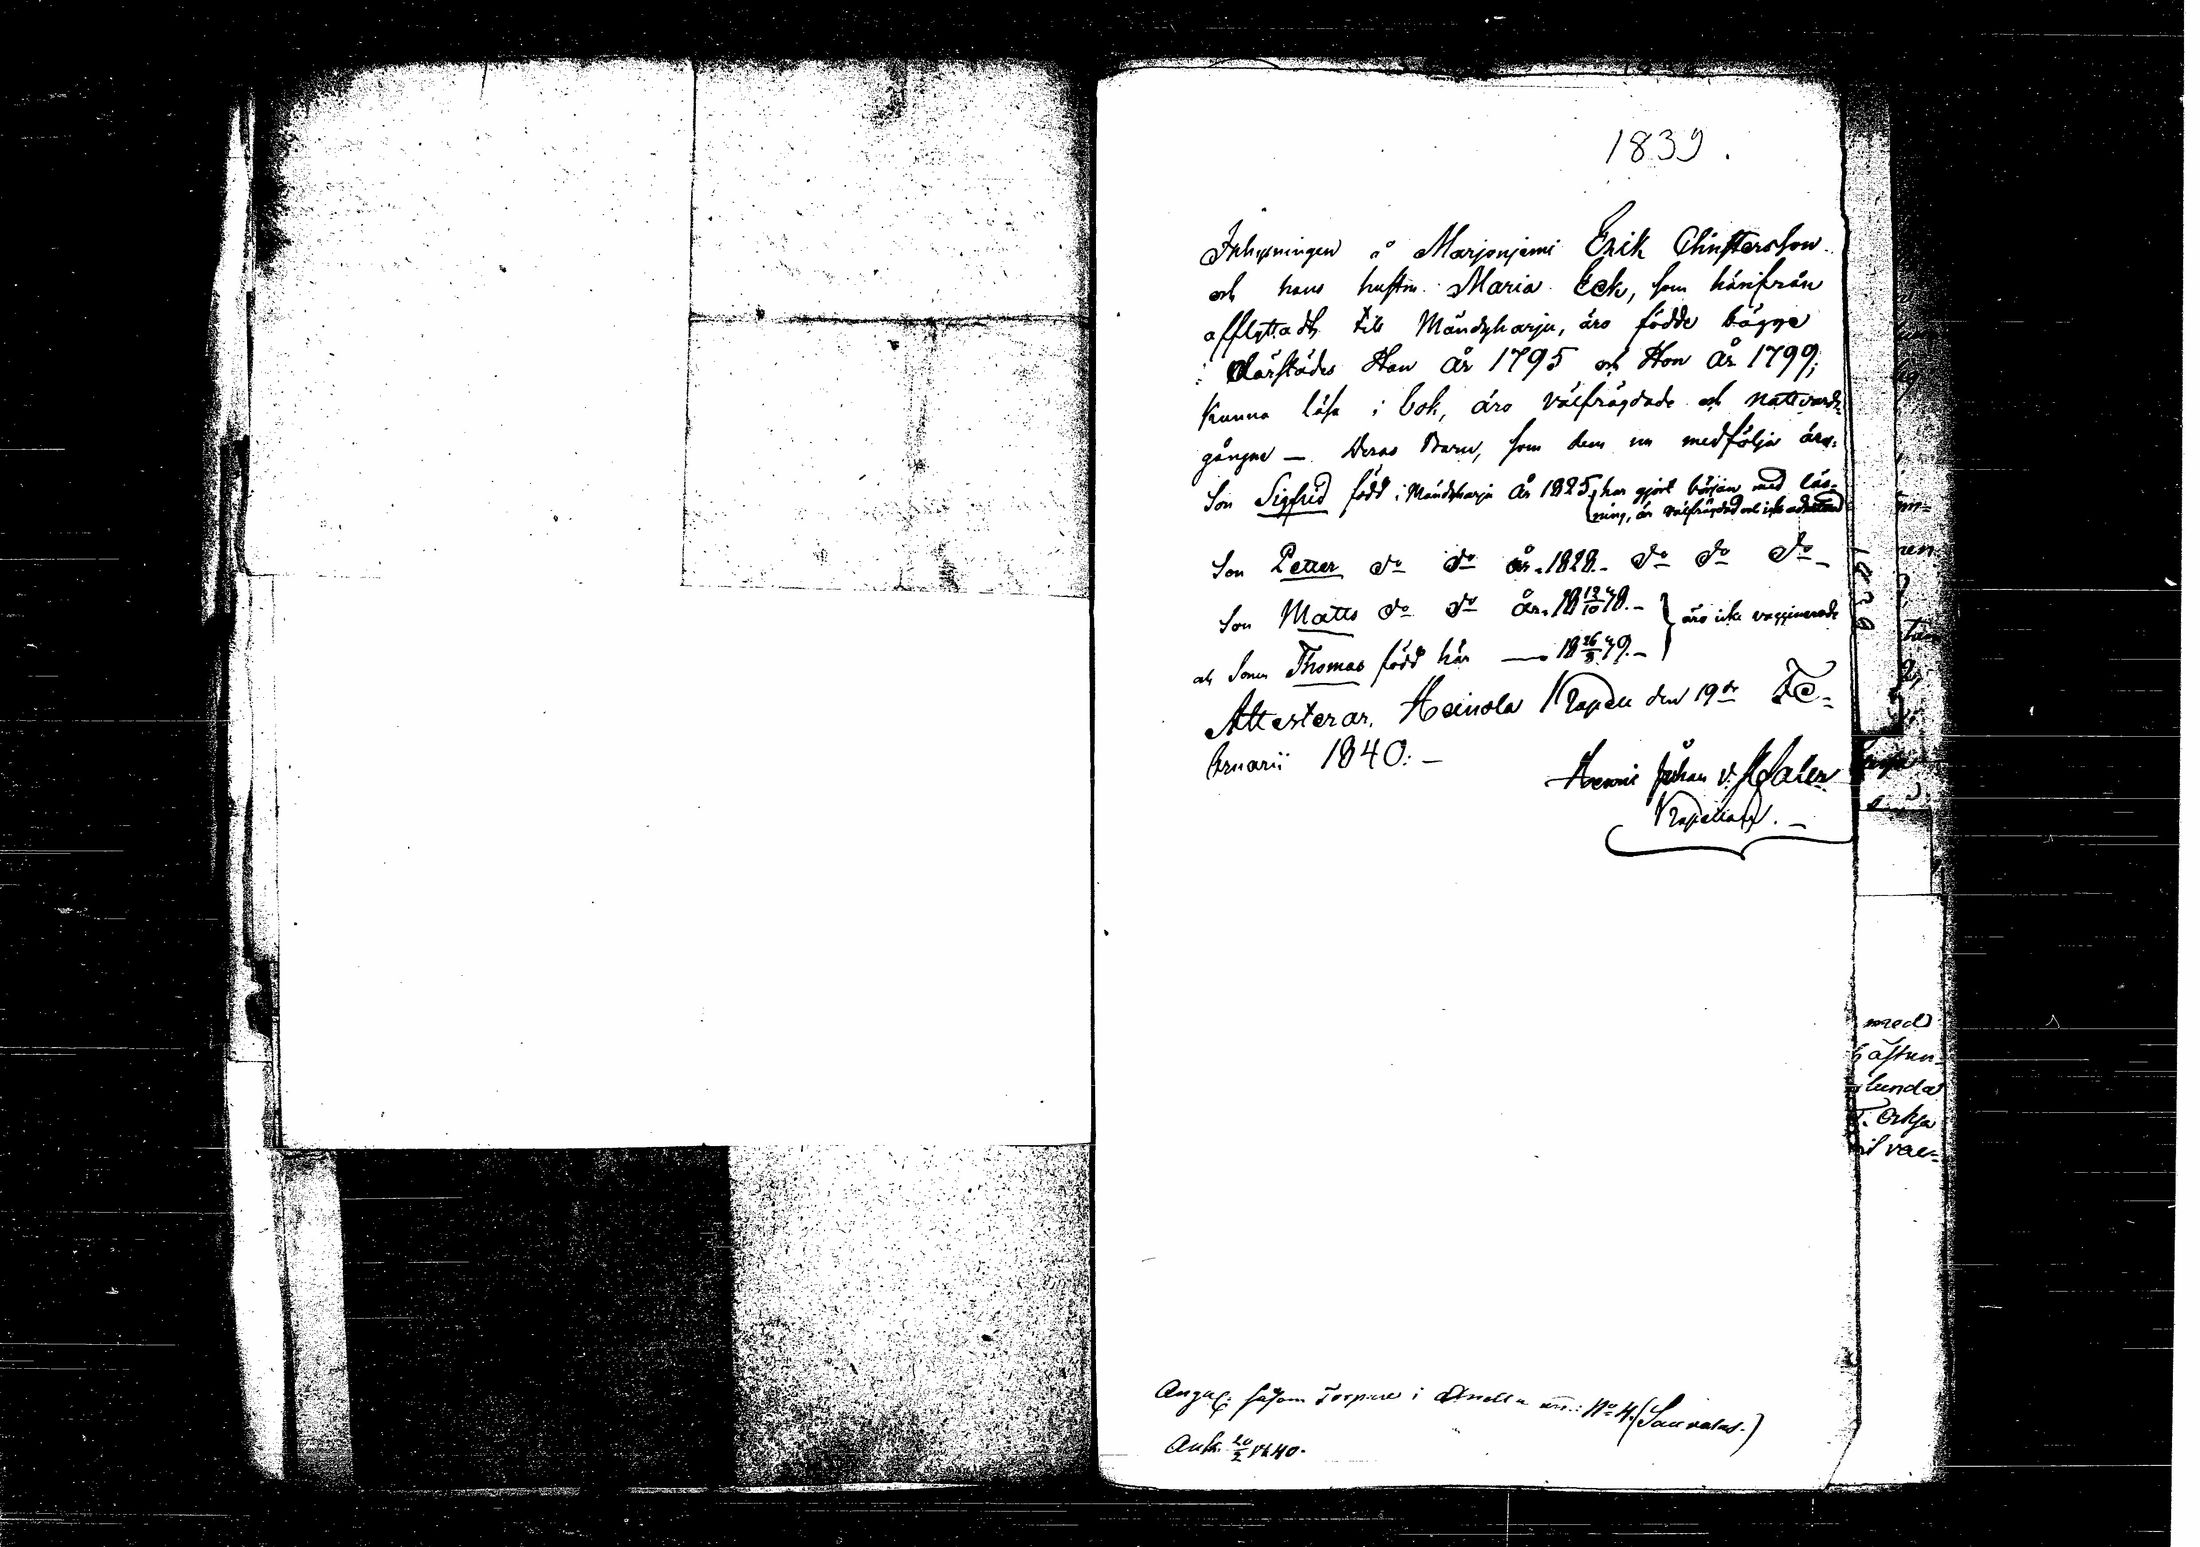 1839.
Inhysningen å Marjonjemi Erik Christersson
och hans hustru Maria Eek, som härifrån
afflyttadt till Mändyharju, äro födde bägge
därstädes Han år 1795 och Hon år 1799;
kunna läsa i bok, äro välfrägdade och nattvards-
gångne — Deras Barn, som dem nu medfölja äro:
Son Sigfrid född i Mändyharju år 1825 har gjort början med läs-
ning, är välfrägdad och icke admitterad
Son Petter do do år 1828.- do do do -
Son Matts do do år 18 12/10 38.- äro icke vaccinerade
och Sonen Thomas född här — 18 26/8 39.-
Attesterar, Heinola Kapell den 19de Fe-
bruarii 1840. —
Henric Johan v.
Kapellan. —
såsom Torpare i No 4. (
Ank. 20/2 1840.
med
lunda